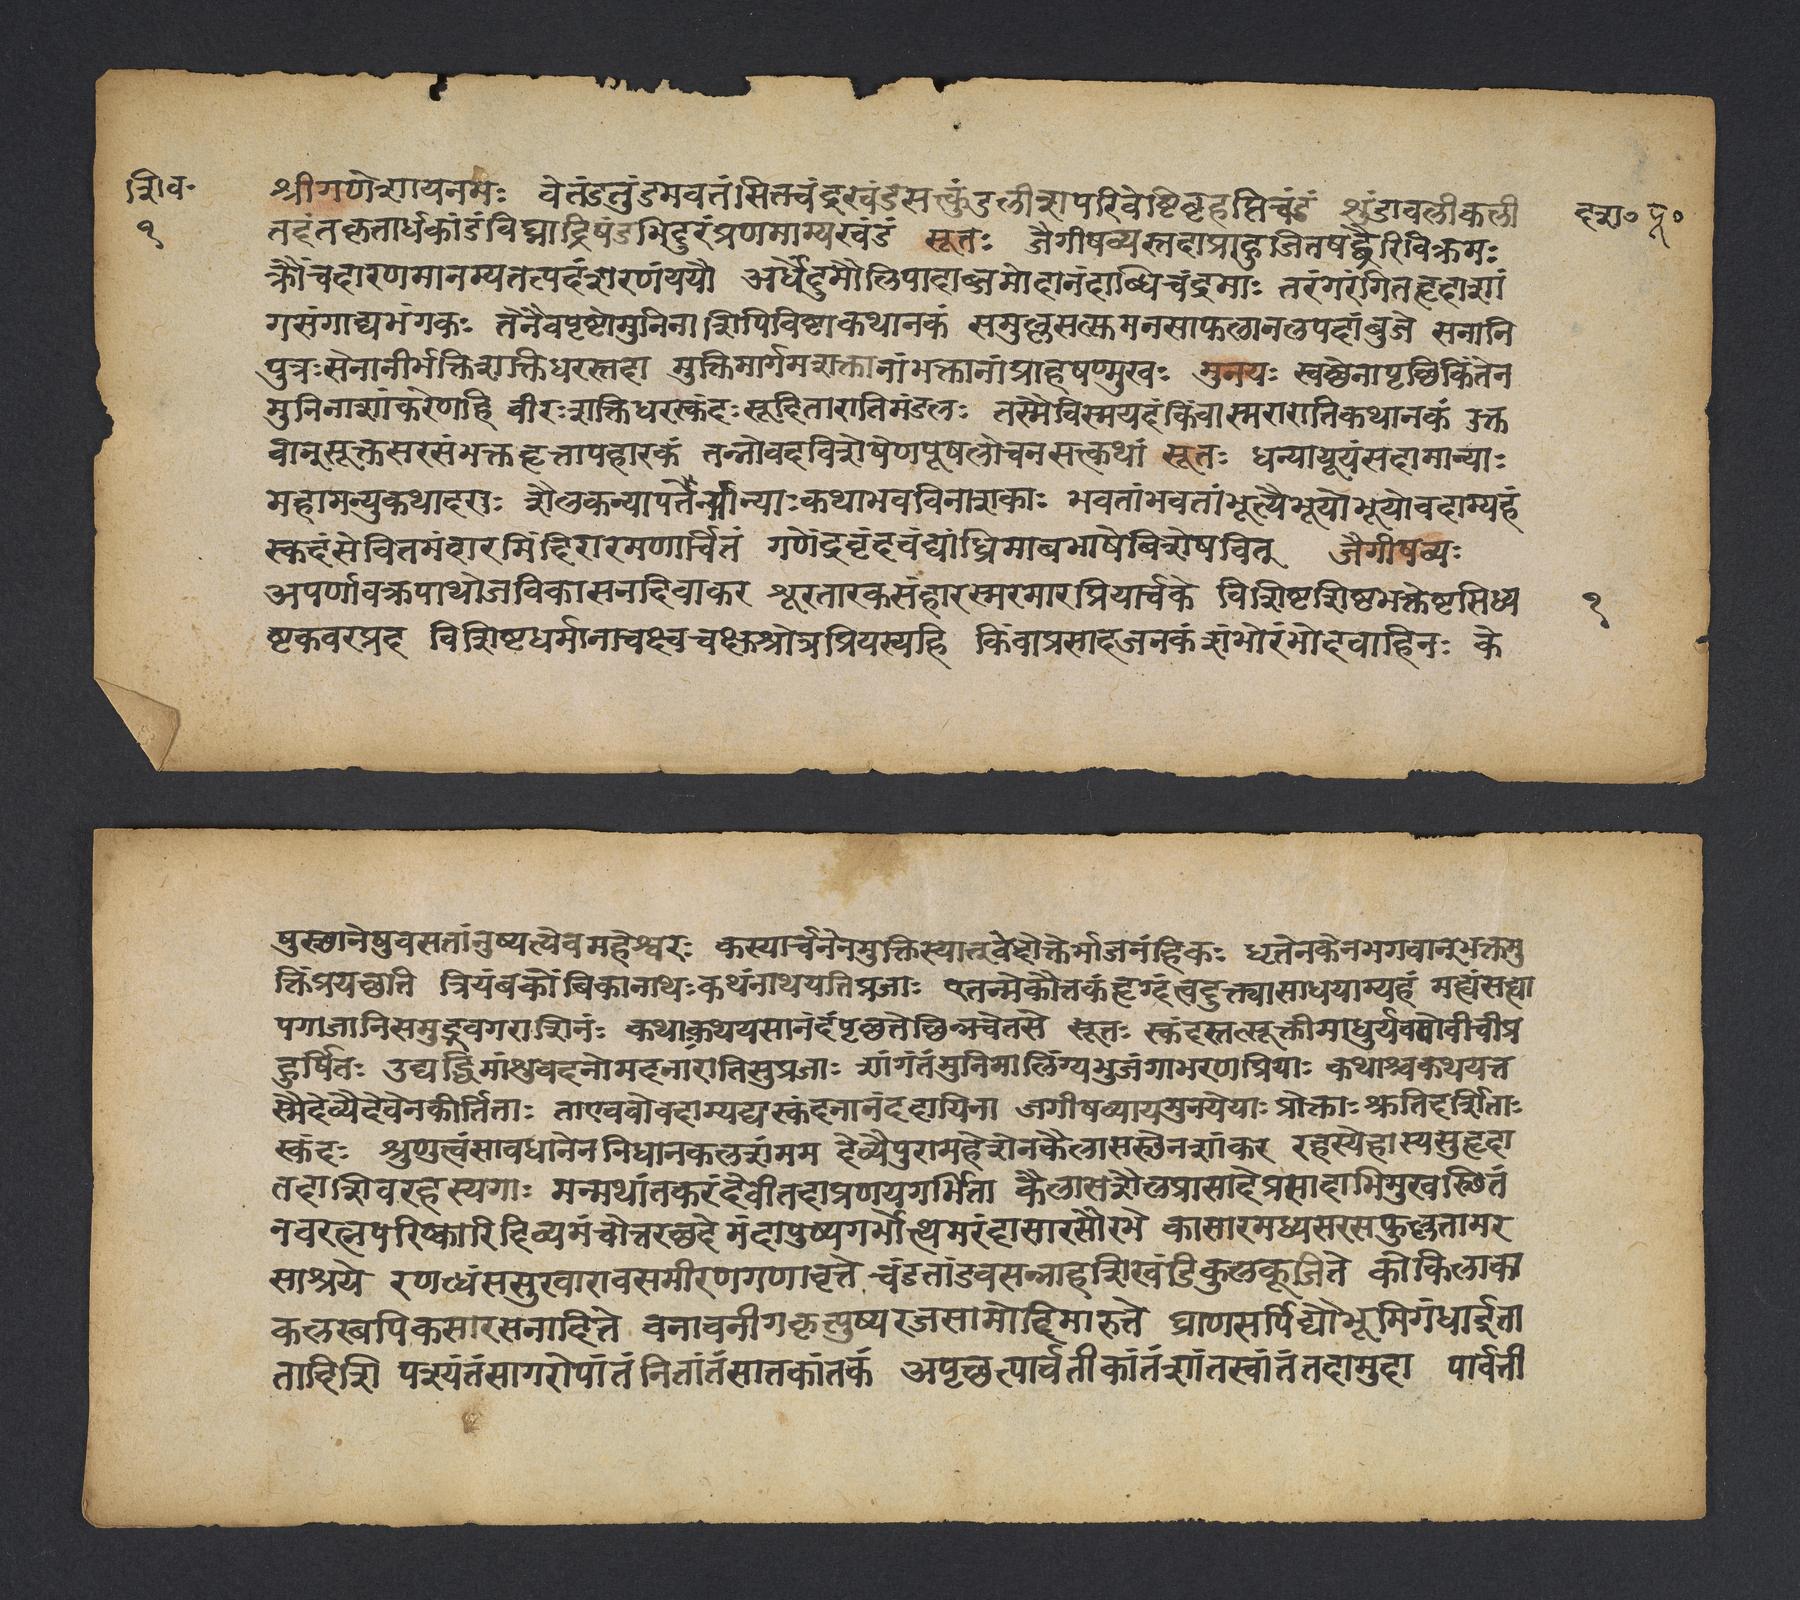 शिव॰
१
श्रीगणेशायनमः वेतंडतुंडमवतंसितचंद्रखंडंसत्कुंडलीशपरिवेष्टितृहप्तिचंडं शुंडावलीकली
दश॰ पू॰
तदंतलतार्धकांडंविघ्नाद्रिषंडभिदुरंप्रणमाम्यखंडं सूतः जैगीषव्यस्तदाप्राहजितषड्वैरिविक्रमः
क्रौंचदारणमानम्यतत्पदंशरणंययौ अर्धेंदुमौलिपादाब्जमोदानंदाब्धिचंद्रमाः तरंगरंगितहृदाशां
गसंगाद्यभंगकः तेनैवपृष्टोमुनिनाशिपिविष्टाकथानकं समुल्लसत्क्रमनसाफलानलपदांबुजे सनानि
पुत्रःसेनानीर्भक्तिशक्तिधरस्तदा मुक्तिमार्गमशक्तानांभक्तानांप्राहषण्मुखः मुनयः स्वछेनापृछिकिंतेन
मुनिनाशांकरेणहि वीरःशक्तिधरस्कंदःसूदितारातिमंडलः तस्मैविस्मयदंकिंवास्मरारातिकथानकं उक्त
वोनुसूक्तसरसंभक्तहृत्तापहारकं तन्नोवदविशेषेणपूषलोचनसत्कथां सूतः धन्यायूयंसदामान्याः
महामन्युकथादराः शैलकन्यापतेर्मान्याःकथाभवविनाशकाः भवतांभवतांभूत्यैभूयोभूयोवदाम्यहं
स्कंदंसेवितमंदारमिंदिरारमणार्चितं गणेंद्रवृंदवंद्यांघ्रिमाबभाषेविशेषवित् जैगीषव्यः
अपर्णावक्त्रपाथोजविकासनदिवाकर शूरतारकसंहारस्मरमारप्रियार्चके विशिष्टशिष्टभक्तेष्टसिध्य
१
ष्टकवरप्रद विशिष्टधर्मानाचक्ष्वचक्षुःश्रोत्रप्रियस्यहि किंवाप्रसादजनकंशंभोरंभोदवाहिनः के
षुस्छानेषुवसतांतुष्यत्येवमहेश्वरः कस्यार्चनेनमुक्तिस्यात्वेदोक्तेर्भाजनंहिकः धृतेनकेनभगवान्भक्तमु
क्तिंप्रयछाति त्रियंबकोंबिकानाथःकथंनाथयतिप्रजाः एतन्मेकौतकंहृग्दंत्वदुक्त्यासाधयाम्यहं मह्यंसद्या
पगाजानिसमुद्भवगराशिनंः कथाकथयसानंदंपृछतेछिन्नचेतसे सूतः स्कंदस्तत्सूक्तीमाधुर्यवचोवीचीप्र
हर्षितः उद्यद्धिमांशुवदनोमदनारातिसुप्रजाः शांगंतंमुनिमालिंग्यभुजंगाभरणप्रियाः कथाश्चकथयत्त
स्मैदेव्यैदेवेनकीर्तिताः ताएववोवदाम्यद्यस्कंदेनानंददायिना जगीषव्यायमुनयेयाः प्रोक्ताःश्रुतिदर्शिताः
स्कंदः श्रुणुत्वंसावधानेननिधानकलशंमम देव्यैपुरामहेशेनकैलासस्छेनशांकर रहस्येहास्यसुहृदा
तदाशिवरहस्यगाः मन्मथांतकरंदेवीतदाप्रणयगर्भिता कैलासशैलप्रासादेप्रसादाभिमुखस्छितं
नवरत्नपरिष्कारिदिव्यमंचोत्तरछदे मंदापुष्पगर्भोत्थमरंदासारसौरभे कासारमध्यसरसफुल्लतामर
साश्रये रणत्धंससुखारावसमीरणगणावृत्ते चंडतांडवसन्नाहशिखंडिकुलकूजिते कोकिलाका
कलस्बपिकसारसनादिते वनावनीगकृत्पुष्परजसामोदिमारुते घ्राणसर्पिद्यौभूमिगंधार्द्रता
तादिशि पश्यंतंसागरोपांतं नितांतंसातकांतकं अपृछत्पार्वतीकांतंशांतस्वांतंतदामुदा पार्वती